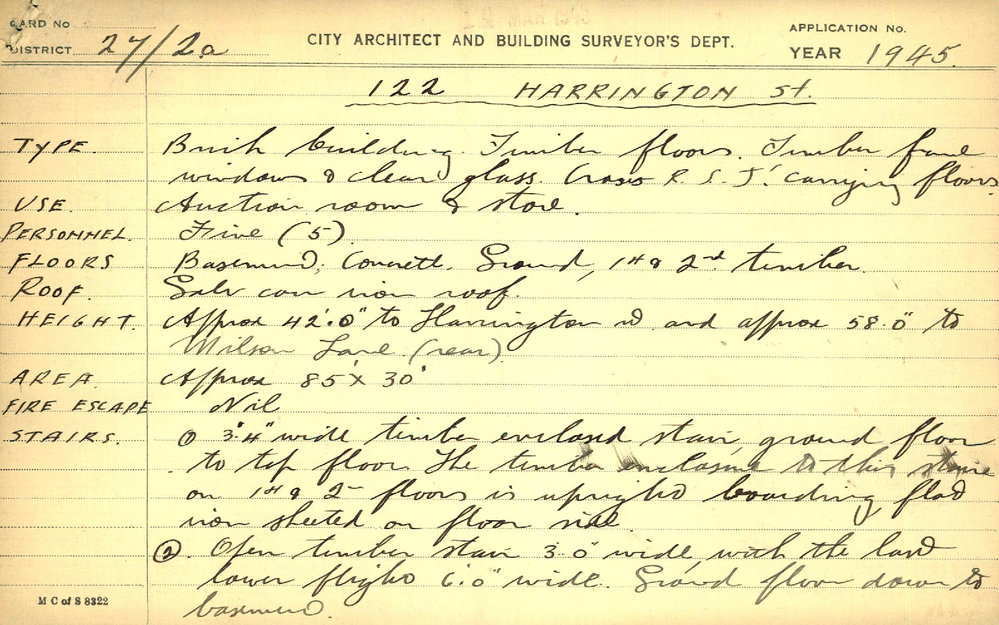 CARD No
DISTRICT 27/2a
CITY ARCHITECT AND BUILDING SURVEYOR'S DEPT.
APPLICATION No.
YEAR 1945.
122 HARRINGTON St.
TYPE. Brick building. Timber floors. Timber frame
windows & clear glass. Cross R.S.J'. carrying floors.
USE. Auction room & store.
PERSONNEL. Five (5).
FLOORS Basement, Concrete. Ground, 1st & 2nd timber.
ROOF. Galv corr iron roof.
HEIGHT. Approx 42'.0" to Harrington St and approx 58'.0" to
Wilson Lane (rear).
AREA. Approx 85' x 30'
FIRE ESCAPE Nil
STAIRS. ① 3'.4" wide timber enclosed stair ground floor
to top floor. The timber enclosing to this stair
on 1st & 2nd floors is upright boarding flat
iron sheeted on floor side.
②. Open timber stair 3'.0" wide, with the last
lower flight 6'.0" wide. Ground floor down to
basement.
M C of S 8322